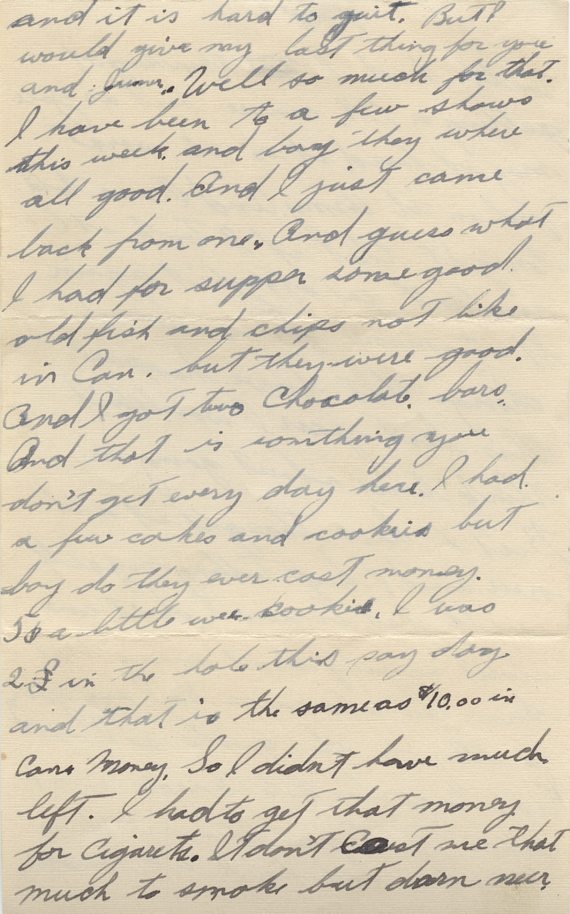 and it is hard to quit. But I
would give my last thing for you
and Junior. Well so much for that.
I have been to a few shows
this week. and boy they where
all good. And I just came
back from one. And guess what
I had for supper some good.
old fish and chips not like
in Can. but they were good.
And I got two Chocolate. bars.
And that is somthing you
don't get every day here. I had.
a few cakes and cookies but
boy do they ever cost money.
a little wee cookie, I was
2 in the hole this pay day
and that is the same as $10.00 in
Can. Money. So I didn't have much
left. I had to get that money
for Cigarets. It don't Cost me that
much to smoke but darn near